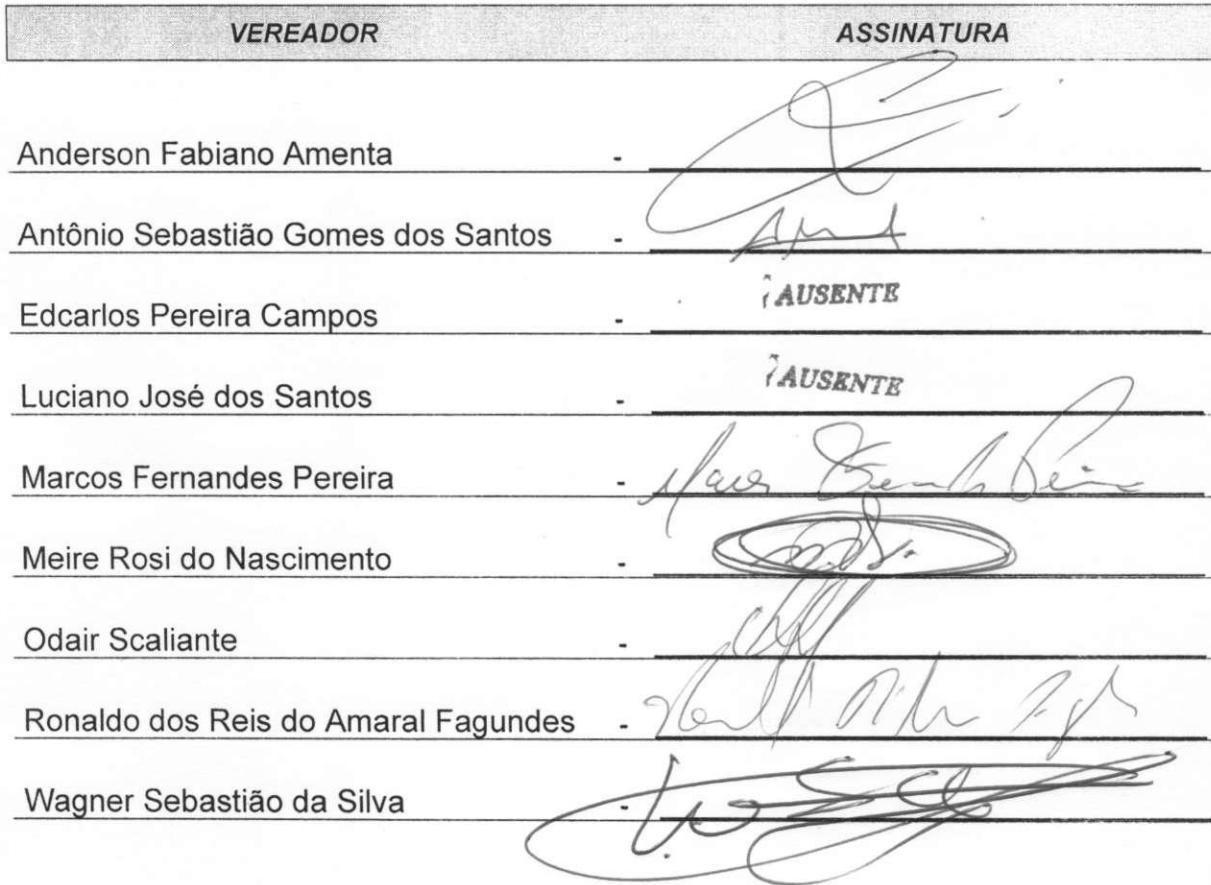 VEREADOR ASSINATURA
Anderson Fabiano Amenta -
Antônio Sebastião Gomes dos Santos -
Edcarlos Pereira Campos - AUSENTE
Luciano José dos Santos - AUSENTE
Marcos Fernandes Pereira -
Meire Rosi do Nascimento -
Odair Scaliante -
Ronaldo dos Reis do Amaral Fagundes -
Wagner Sebastião da Silva -